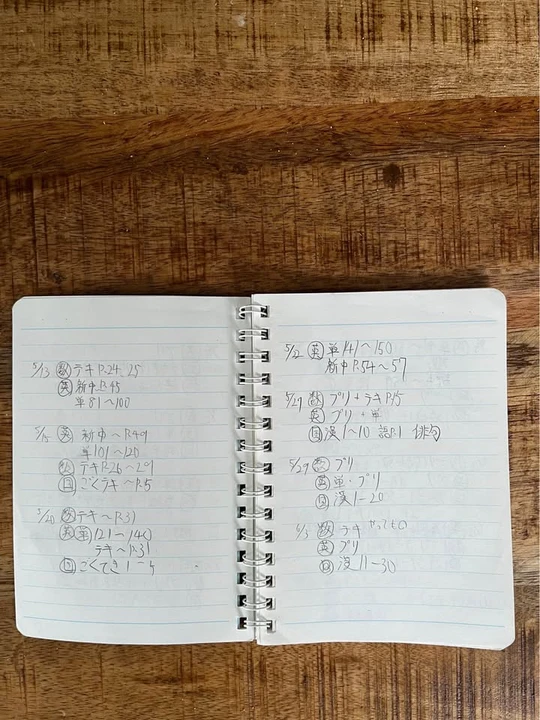 5/13 数 テキ P.24, 25
英 新中 P.45
単 81〜100
5/15 英 新中〜P.49
単 101〜120
数 テキ P.26〜29
国 ごくテキ〜P.5
5/20 数 テキ〜P.31
英 単 121〜140
テキ〜P.31
国 ごくてき 1-4
5/22 英 単 141〜150
新中 P.54〜57
数 プリ+テキ P.15
英 プリ+単
国 漢 1〜10 語P.1 俳句
5/29 数 プリ
英 単・プリ
国 漢 1-20
6/3 数 テキ
英 プリ
国 漢 11-30